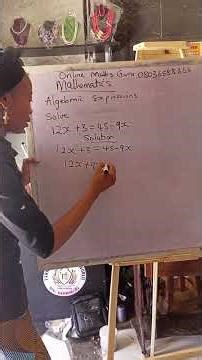 Online Maths Guru
Mathematics
Algebraic Expressions
Solve
12x + 3 = 45 - 9x
Solution
12x + 3 = 45 - 9x
12x + 9x